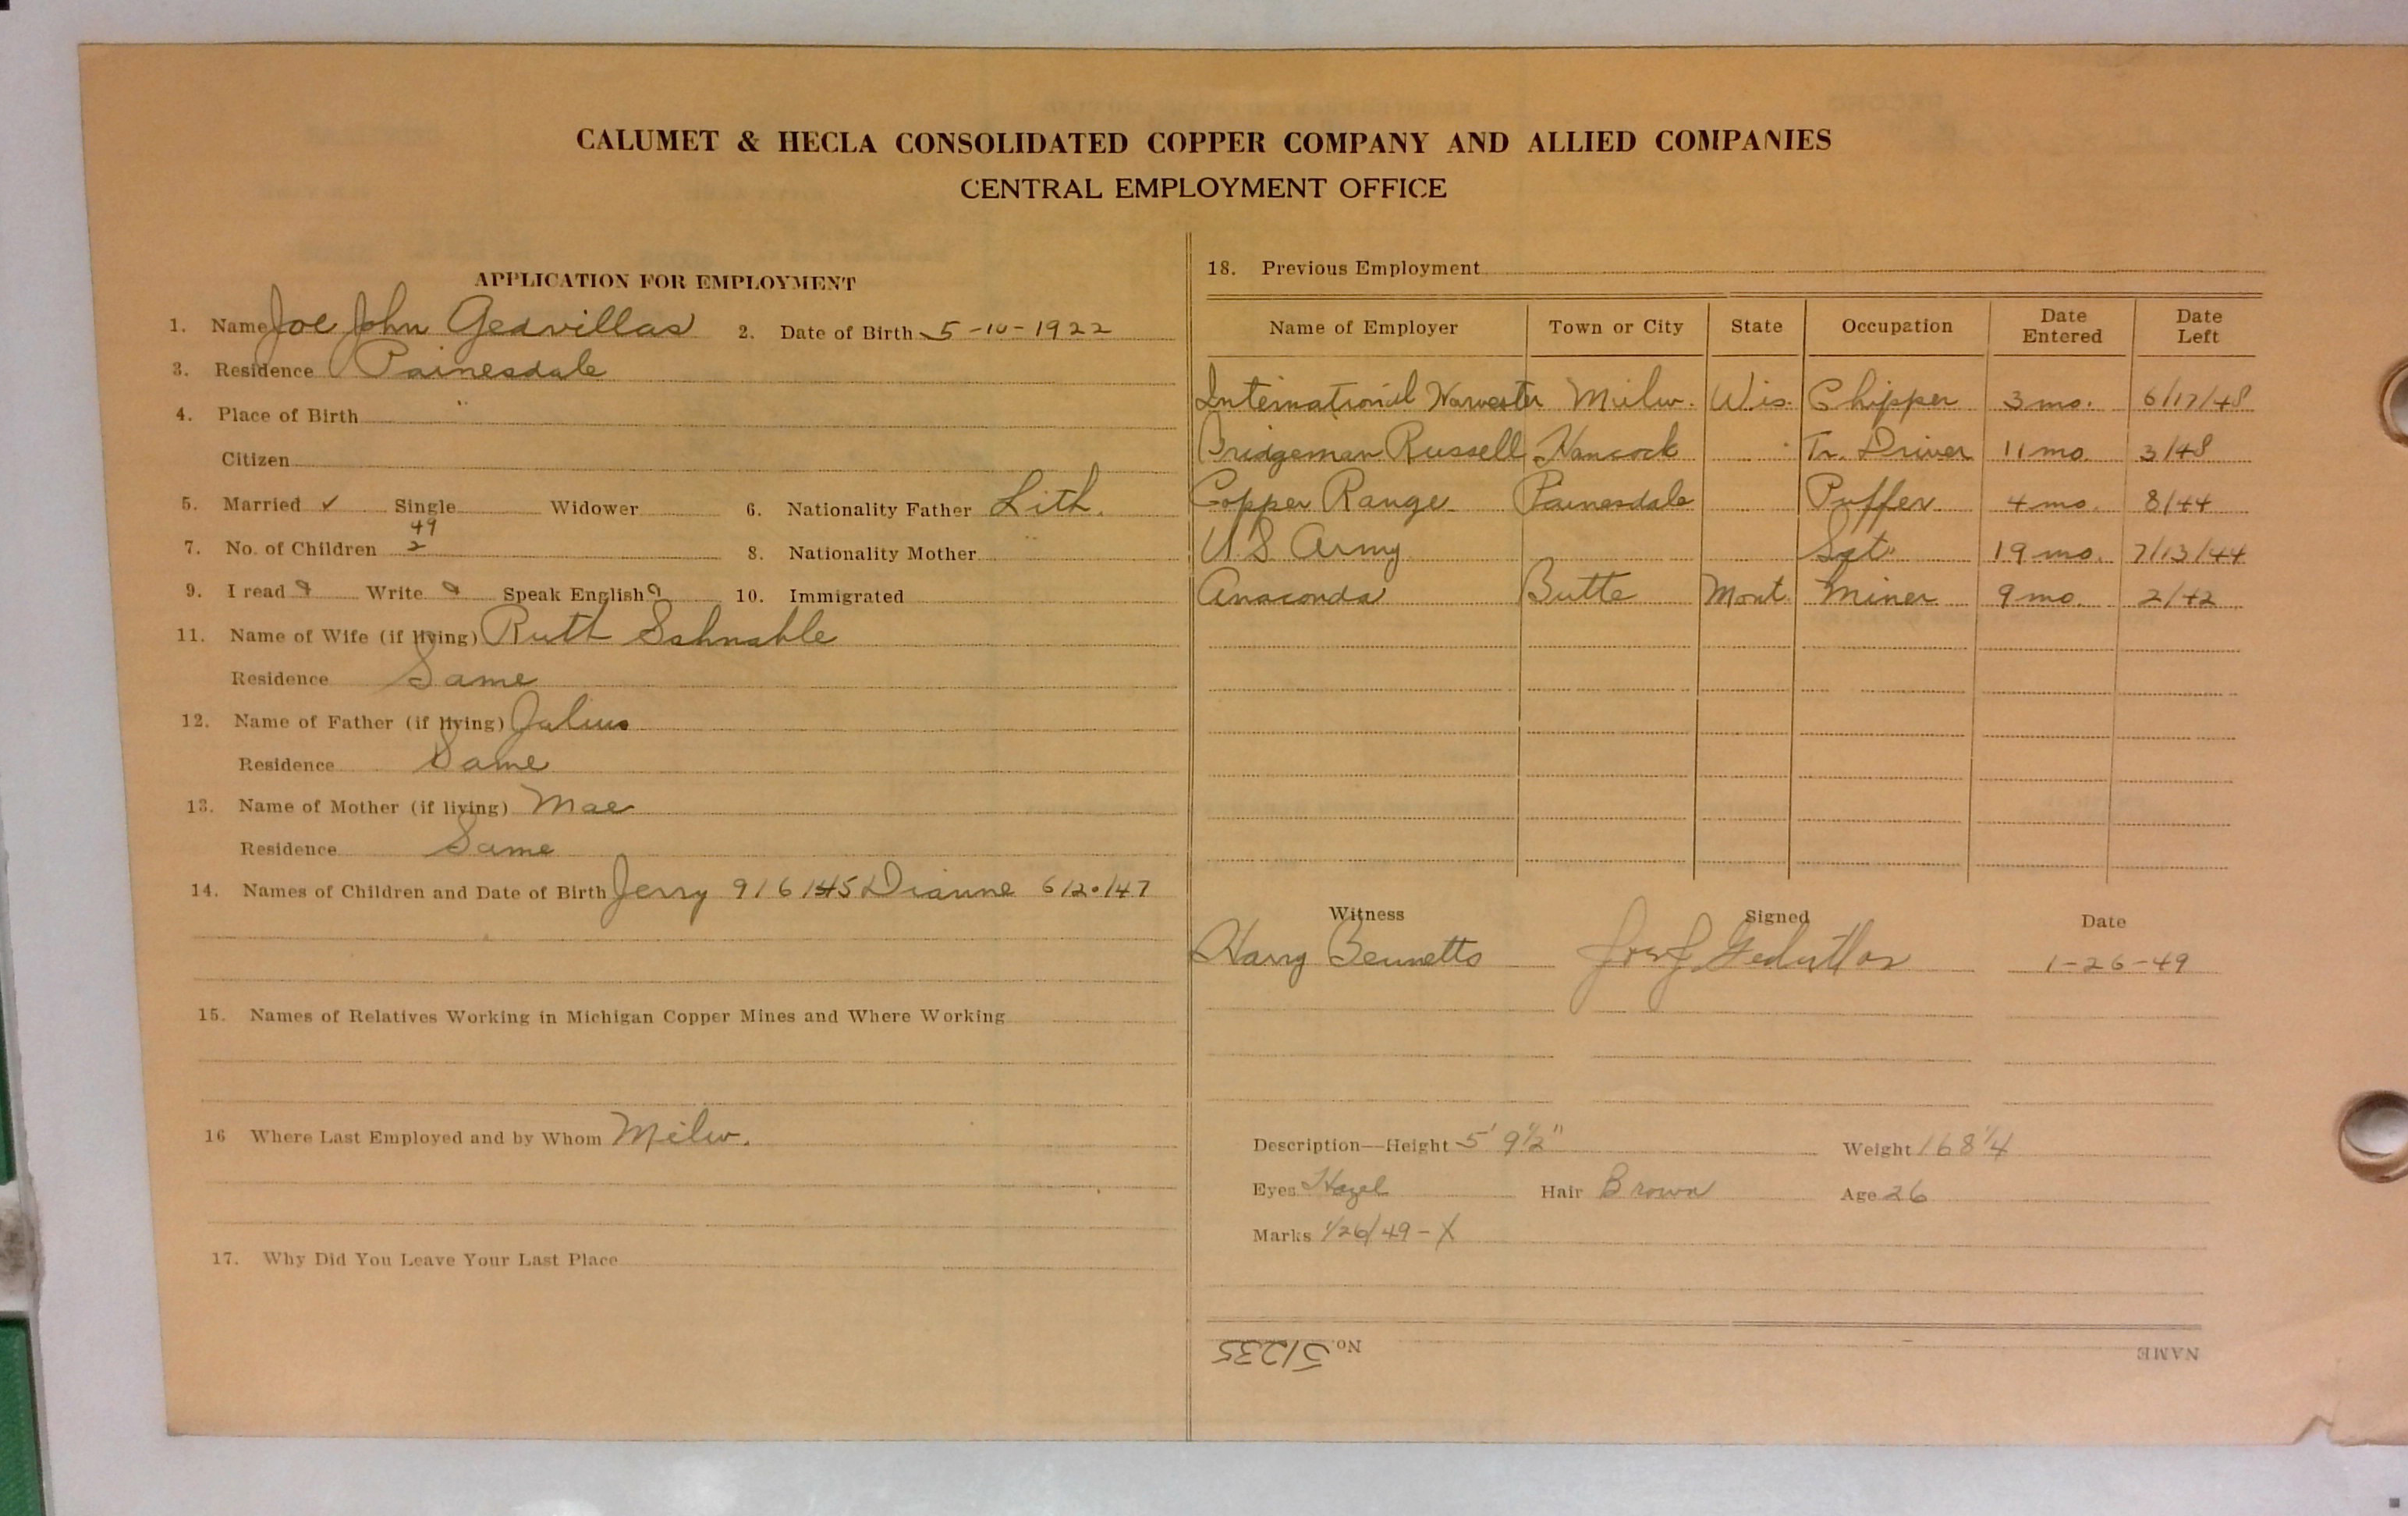 CALUMET & HECLA CONSOLIDATED COPPER COMPANY AND ALLIED COMPANIES
CENTRAL EMPLOYMENT OFFICE
APPLICATION FOR EMPLOYMENT
1. Name Joe John Gedvillas 2. Date of Birth 5-10-1922
3. Residence Painesdale
4. Place of Birth "
Citizen
5. Married ✓ Single Widower 6. Nationality Father Lith.
49
7. No. of Children 2 8. Nationality Mother "
9. I read Write Speak English 10. Immigrated
11. Name of Wife (if living) Ruth Sahnable
Residence Same
12. Name of Father (if living) Julius
Residence Same
13. Name of Mother (if living) Mae
Residence Same
14. Names of Children and Date of Birth Jerry 9/6/45 Dianne 6/20/47
15. Names of Relatives Working in Michigan Copper Mines and Where Working
16 Where Last Employed and by Whom Milw.
17. Why Did You Leave Your Last Place
18. Previous Employment
Name of Employer Town or City State Occupation Date Entered Date Left
International Harvester Milw. Wis. Chipper 3 mo. 6/17/48
Bridgeman Russell Hancock Tr. Driver 11 mo. 3/48
Copper Range Painesdale Puffer 4 mo. 8/44
U S Army Sgt. 19 mo. 7/13/44
Anaconda Butte Mont. Miner 9 mo. 2/42
Witness Signed Date
Harry Bennetts 1-26-49
Description—Height 5' 9½" Weight 168¼
Eyes Hazel Hair Brown Age 26
Marks 1/26/49 - X
NAME No. 51235